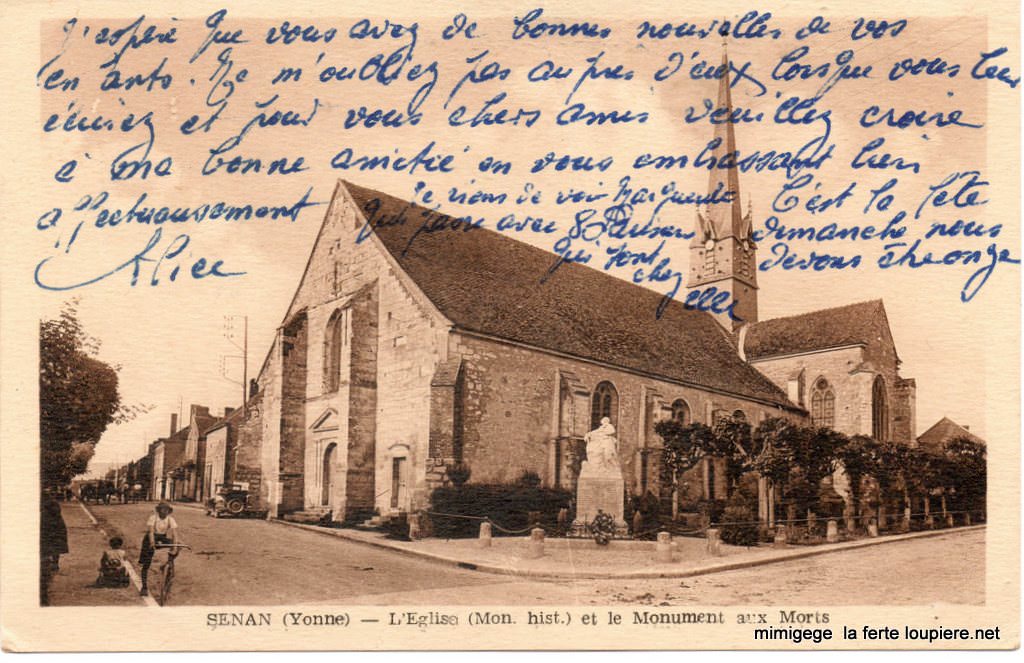 J'espère que vous avez de bonnes nouvelles de vos
en ants. Ne m'oubliez pas auprès d'eux lorsque vous leur
écrirez et pour vous chers amis veuillez croire
à ma bonne amitié en vous embrassant bien
affectueusement
Alice
je viens de voir Marguerite
qui part avec 8 Parisiens
qui sont
chez
elle
C'est la fête
dimanche nous
devons être onze
SENAN (Yonne) — L'Eglise (Mon. hist.) et le Monument aux Morts
mimigege la ferte loupiere.net